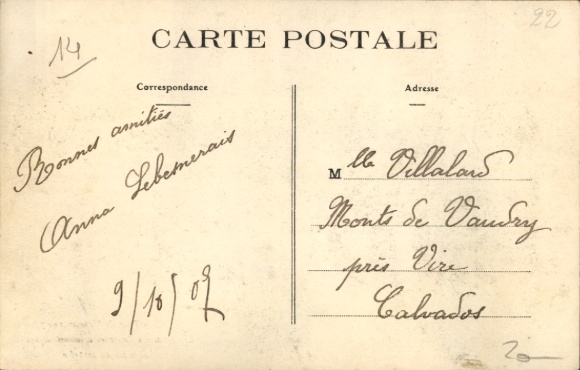 14
22
CARTE POSTALE
Correspondance
Adresse
Bonnes amitiés
Anna Lebesnerais
9/10/07
Mlle Villalard
Monts de Vaudry
près Vire
Calvados
20